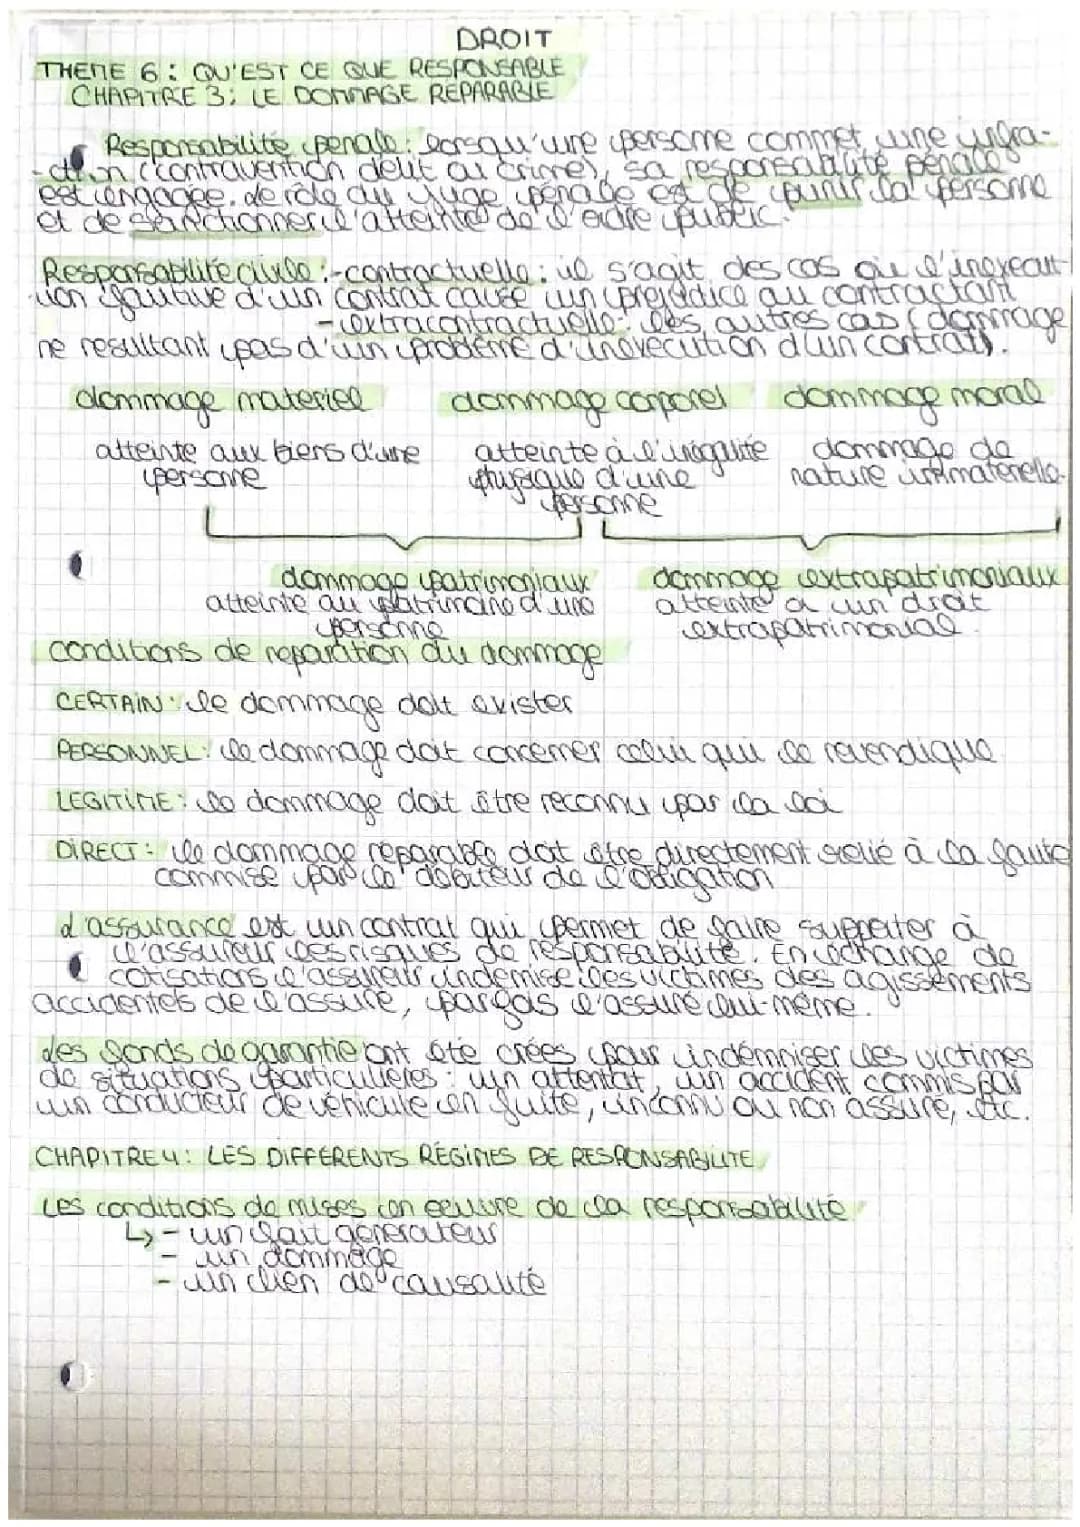 DROIT
THEME 6 : QU'EST CE QUE RESPONSABLE
CHAPITRE 3 : LE DOMMAGE REPARABLE
Responsabilité penale : lorsqu'une personne commet une infra-
-ction (contravention délit ou crime), sa responsabilité pénale
est engagée. Le rôle du juge pénale est de punir la personne
et de sanctionner l'atteinte de l'ordre public.
Responsabilité civile : - contractuelle : il s'agit des cas où l'inexecut-
-ion fautive d'un contrat cause un prejudice au contractant
- extracontractuelle : les autres cas (dommage
ne resultant pas d'un problème d'inexecution d'un contrat).
dommage materiel dommage corporel dommage moral
atteinte aux biens d'une atteinte à l'inégalité dommage de
personne physique d'une nature immaterielle.
personne
dommage patrimoniaux dommage extrapatrimoniaux
atteinte au patrimoine d'une atteinte a un droit
personne extrapatrimonial.
conditions de reparation du dommage
CERTAIN : le dommage doit exister
PERSONNEL : le dommage doit concerner celui qui le revendique
LEGITIME : le dommage doit être reconnu par la loi
DIRECT : le dommage reparable doit être directement relié à la faute
commise par le debiteur de l'obligation
L'assurance est un contrat qui permet de faire supporter à
l'assureur les risques de responsabilité. En echange de
cotisations l'assureur indemise les victimes des agissements
accidentels de l'assuré, parfois l'assuré lui-même.
Les fonds de garantie ont été crées pour indemniser les victimes
de situations particulieres : un attentat, un accident commis par
un conducteur de vehicule en fuite, inconnu ou non assuré, etc.
CHAPITRE 4 : LES DIFFERENTS RÉGIMES DE RESPONSABILITE
Les conditions de mises en oeuvre de la responsabilité
↳ - un fait generateur
- un dommage
- un lien de causalité